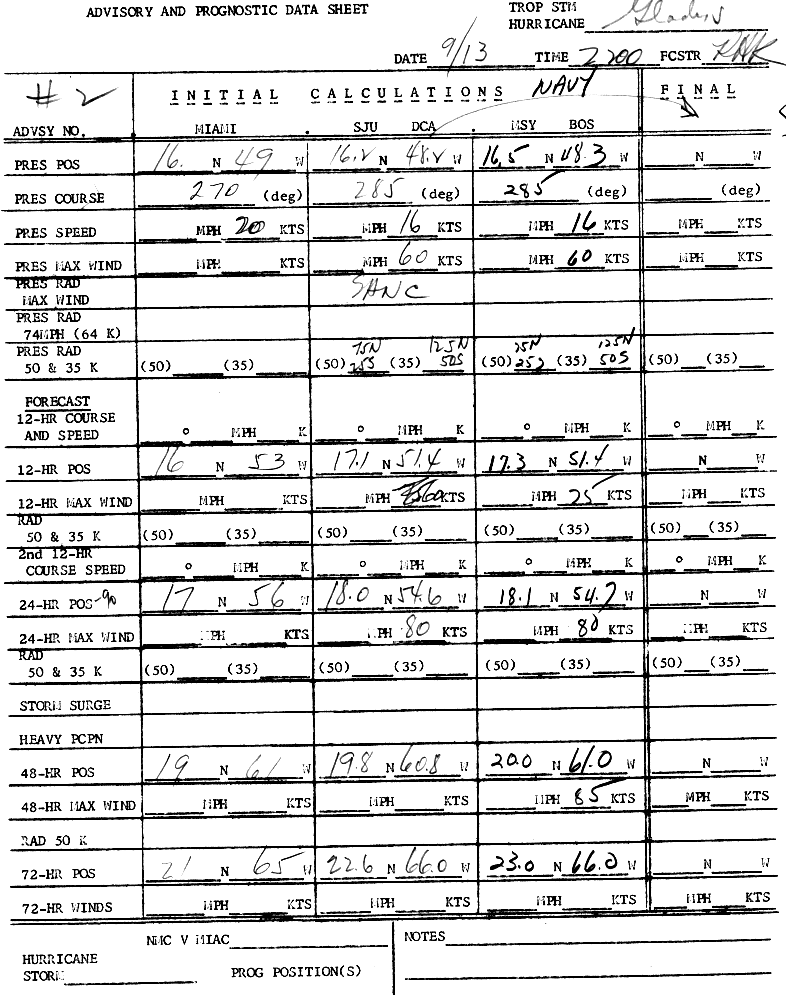 ADVISORY AND PROGNOSTIC DATA SHEET
TROP STM
HURRICANE Gladys
DATE 9/13 TIME 2200 FCSTR
#2 INITIAL CALCULATIONS NAVY FINAL
ADVSY NO. MIAMI . SJU DCA . MSY BOS
PRES POS 16. N 49 W 16.2 N 48.2 W 16.5 N 48.3 W N W
PRES COURSE 270 (deg) 285 (deg) 285 (deg) (deg)
PRES SPEED MPH 20 KTS MPH 16 KTS MPH 16 KTS MPH KTS
PRES MAX WIND MPH KTS MPH 60 KTS MPH 60 KTS MPH KTS
PRES RAD
MAX WIND
PRES RAD
74MPH (64 K)
PRES RAD 75N 125N 75N 125N
50 & 35 K (50) (35) (50) 25S (35) 50S (50) 25S (35) 50S (50) (35)
FORECAST
12-HR COURSE
AND SPEED ° MPH K ° MPH K ° MPH K ° MPH K
12-HR POS 16 N 53 W 17.1 N 51.4 W 17.3 N 51.4 W N W
12-HR MAX WIND MPH KTS MPH KTS MPH 25 KTS MPH KTS
RAD
50 & 35 K (50) (35) (50) (35) (50) (35) (50) (35)
2nd 12-HR
COURSE SPEED ° MPH K ° MPH K ° MPH K ° MPH K
24-HR POS 17 N 56 W 18.0 N 54.6 W 18.1 N 54.7 W N W
24-HR MAX WIND MPH KTS MPH 80 KTS MPH 80 KTS MPH KTS
RAD
50 & 35 K (50) (35) (50) (35) (50) (35) (50) (35)
STORM SURGE
HEAVY PCPN
48-HR POS 19 N 61 W 19.8 N 60.8 W 20.0 N 61.0 W N W
48-HR MAX WIND MPH KTS MPH KTS MPH 85 KTS MPH KTS
RAD 50 K
72-HR POS 21 N 65 W 22.6 N 66.0 W 23.0 N 66.0 W N W
72-HR WINDS MPH KTS MPH KTS MPH KTS MPH KTS
NMC V MIAC
NOTES
HURRICANE
STORM PROG POSITION(S)